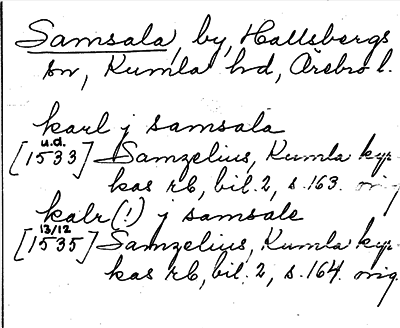 Samsala, by, Hallsbergs
sn, Kumla hd, Örebro l.
karl j samsala
u.d.
[1533] Samzelius, Kumla kyr-
kas rb, bil. 2, s. 163. orig
kalr (!) j samsale
13/12
[1535] Samzelius, Kumla kyr-
kas rb, bil. 2, s. 164. orig.